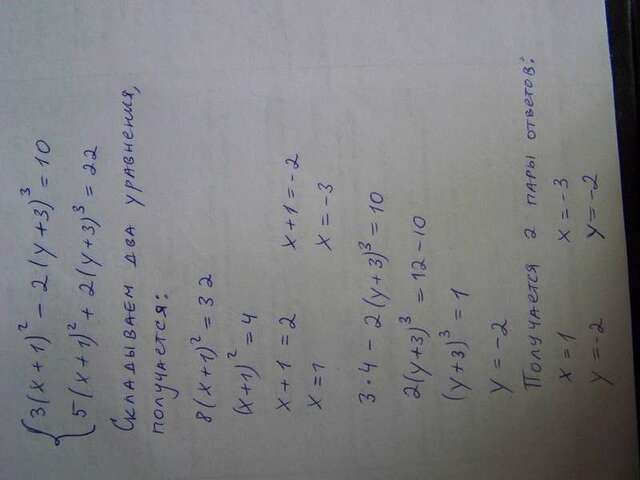 {3(x+1)² - 2(y+3)³ = 10
5(x+1)² + 2(y+3)³ = 22
Складываем два уравнения,
получается:
8(x+1)² = 32
(x+1)² = 4
x+1 = 2 x+1 = -2
x = 1 x = -3
3·4 - 2(y+3)³ = 10
2(y+3)³ = 12-10
(y+3)³ = 1
y = -2
Получается 2 пары ответов:
x = 1 x = -3
y = -2 y = -2